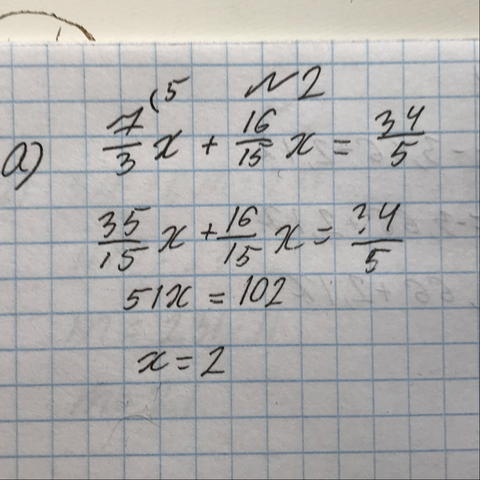 №2
а) 7/3 (5 x + 16/15 x = 34/5
35/15 x + 16/15 x = 34/5
51x = 102
x = 2